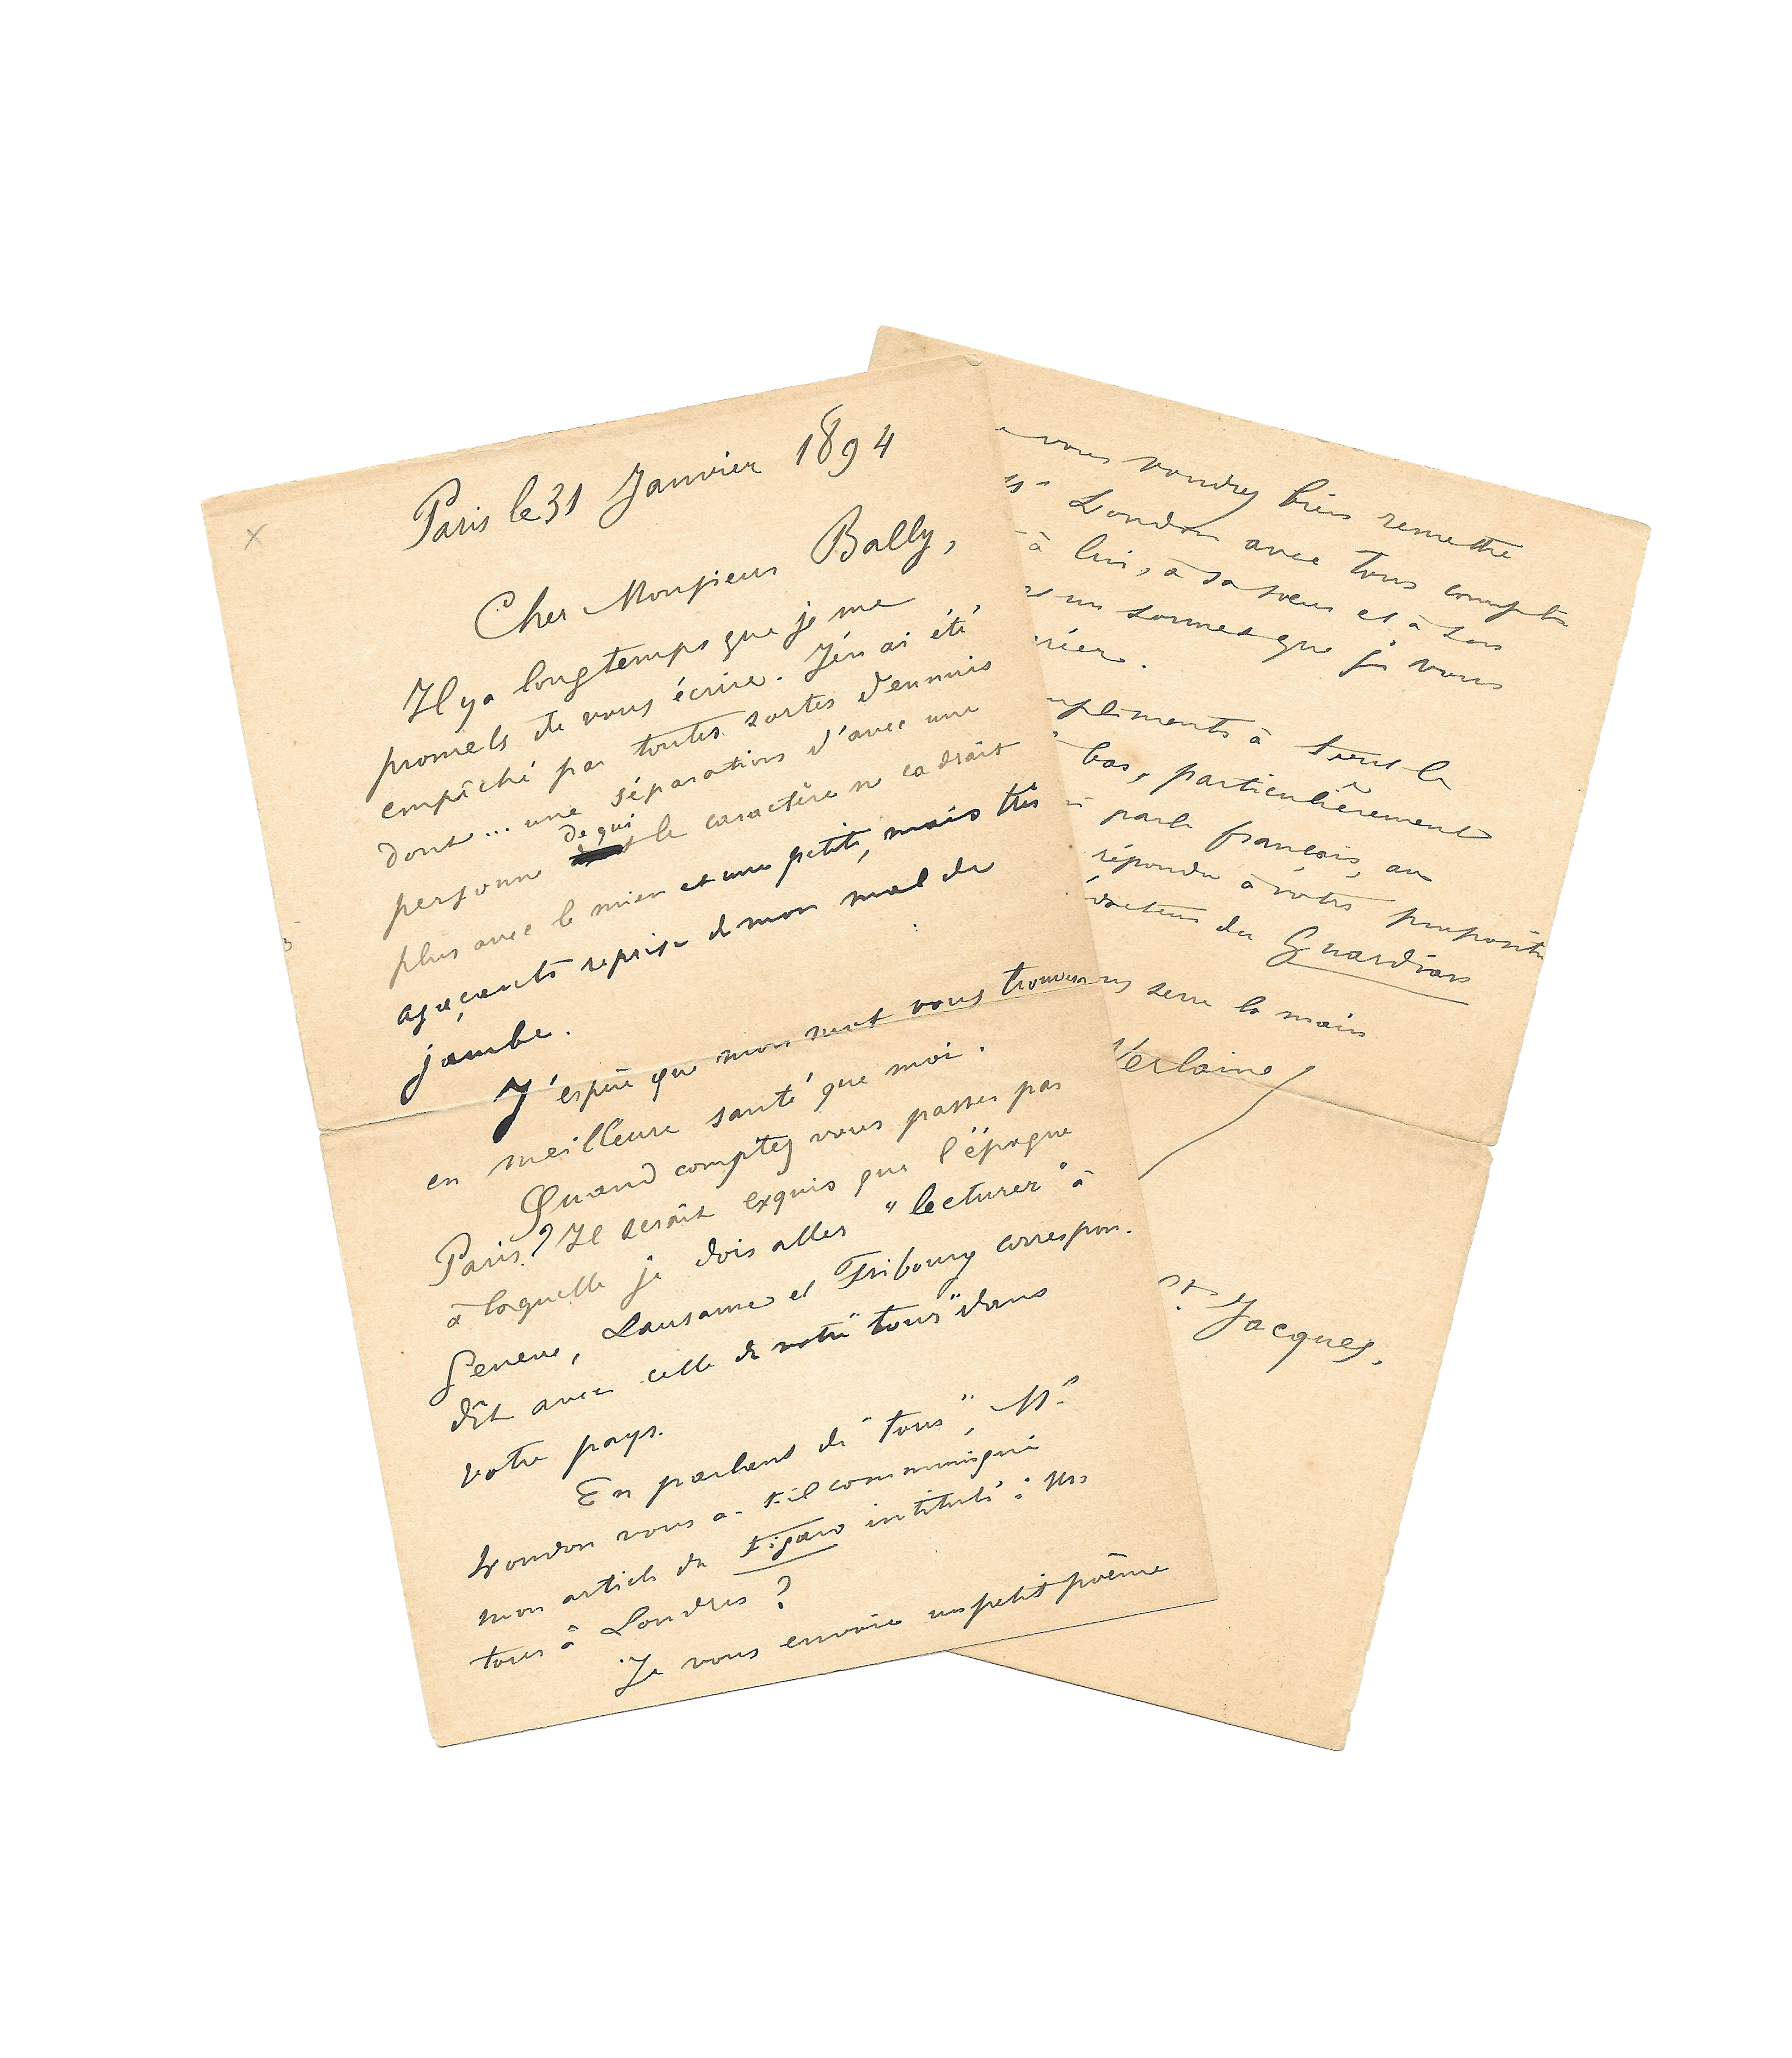 Paris le 31 Janvier 1894
Cher Monsieur Bally,
Il y a longtemps que je me
promets de vous écrire. J'en ai été
empêché par toutes sortes d'ennuis
dont ... une séparation d'avec une
personne de qui le caractère ne cadrait
plus avec le mien et une petite, mais très
agaçante reprise de mon mal de
jambe.
J'espère que mon mot vous trouvera
en meilleure santé que moi.
Quand comptez vous passer par
Paris? Il serait exquis que l'époque
à laquelle je dois aller "lecturer" à
Genève, Lausanne et Fribourg correspon-
dît avec celle de votre "tour" dans
votre pays.
En parlant de "tour", Mr
London vous a-t-il communiqué
mon article du Figaro intitulé: My
tour à Londres?
Je vous envoie un petit poème
vous voudrez bien remettre
London avec tous compli
à lui, à sa sœur et à son
un sonnet que je vous
.
mpliments à tous là
bas, particulièrement
parle français, au
répondu à votre propositi
du Guardian
serre la main
Verlaine
St Jacques.